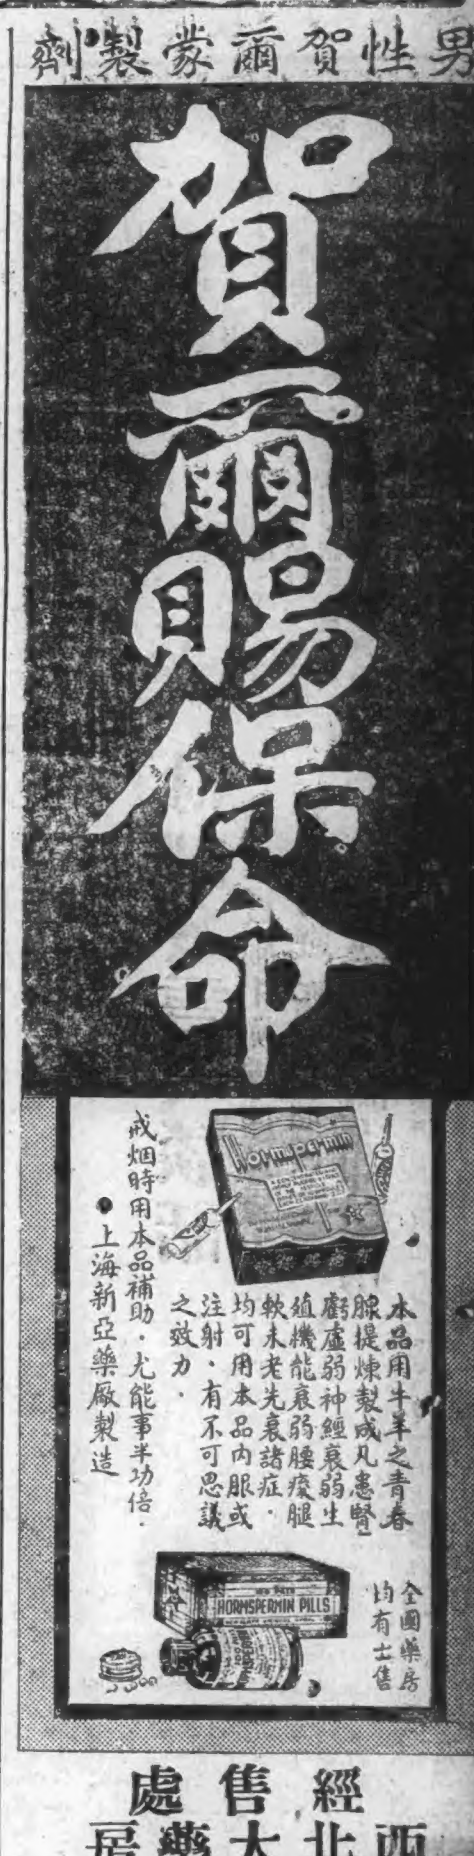 男性賀爾蒙製劑
賀爾賜保命
Hormspermin
本品用牛羊之青春
腺提煉製成凡患腎
虧虛弱神經衰弱生
殖機能衰弱腰痠腿
軟未老先衰諸症．
均可用本品內服或
注射．有不可思議
之效力．
戒烟時用本品補助．尤能事半功倍．
●上海新亞藥廠製造
HORMSPERMIN PILLS
全國藥房
均有士售
經售處
西北大藥房